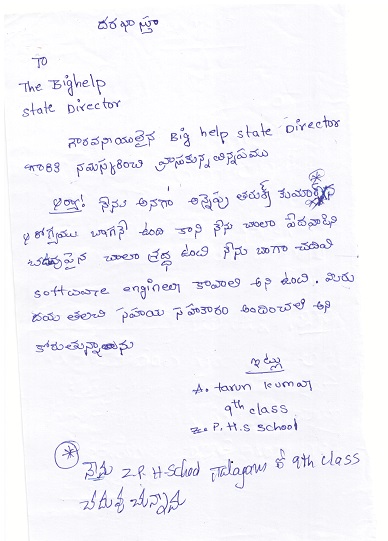 దరఖాస్తూ
TO
The Bighelp
state Director
గౌరవనీయులైన Big help state Director
గారికి నమస్కరించి వ్రాసుకున్న విన్నపము
ఆర్యా! నేను అనగా అన్నెపు తరుణ్ కుమార్
ఆరోగ్యము బాగానే ఉంది కాని నేను చాలా పేదవాడిని
చదువుపైన చాలా శ్రద్ధ ఉంచి నేను బాగా చదివి
software engineer కావాలి అని ఉంది. మీరు
దయ తలచి సహాయ సహకారం అందించాలి అని
కోరుతున్నాను
ఇట్లు
A. tarun kumar
9th class
Z. P. H.S school
* నేను Z.P. H-School లో 9th class
చదువు చున్నాను